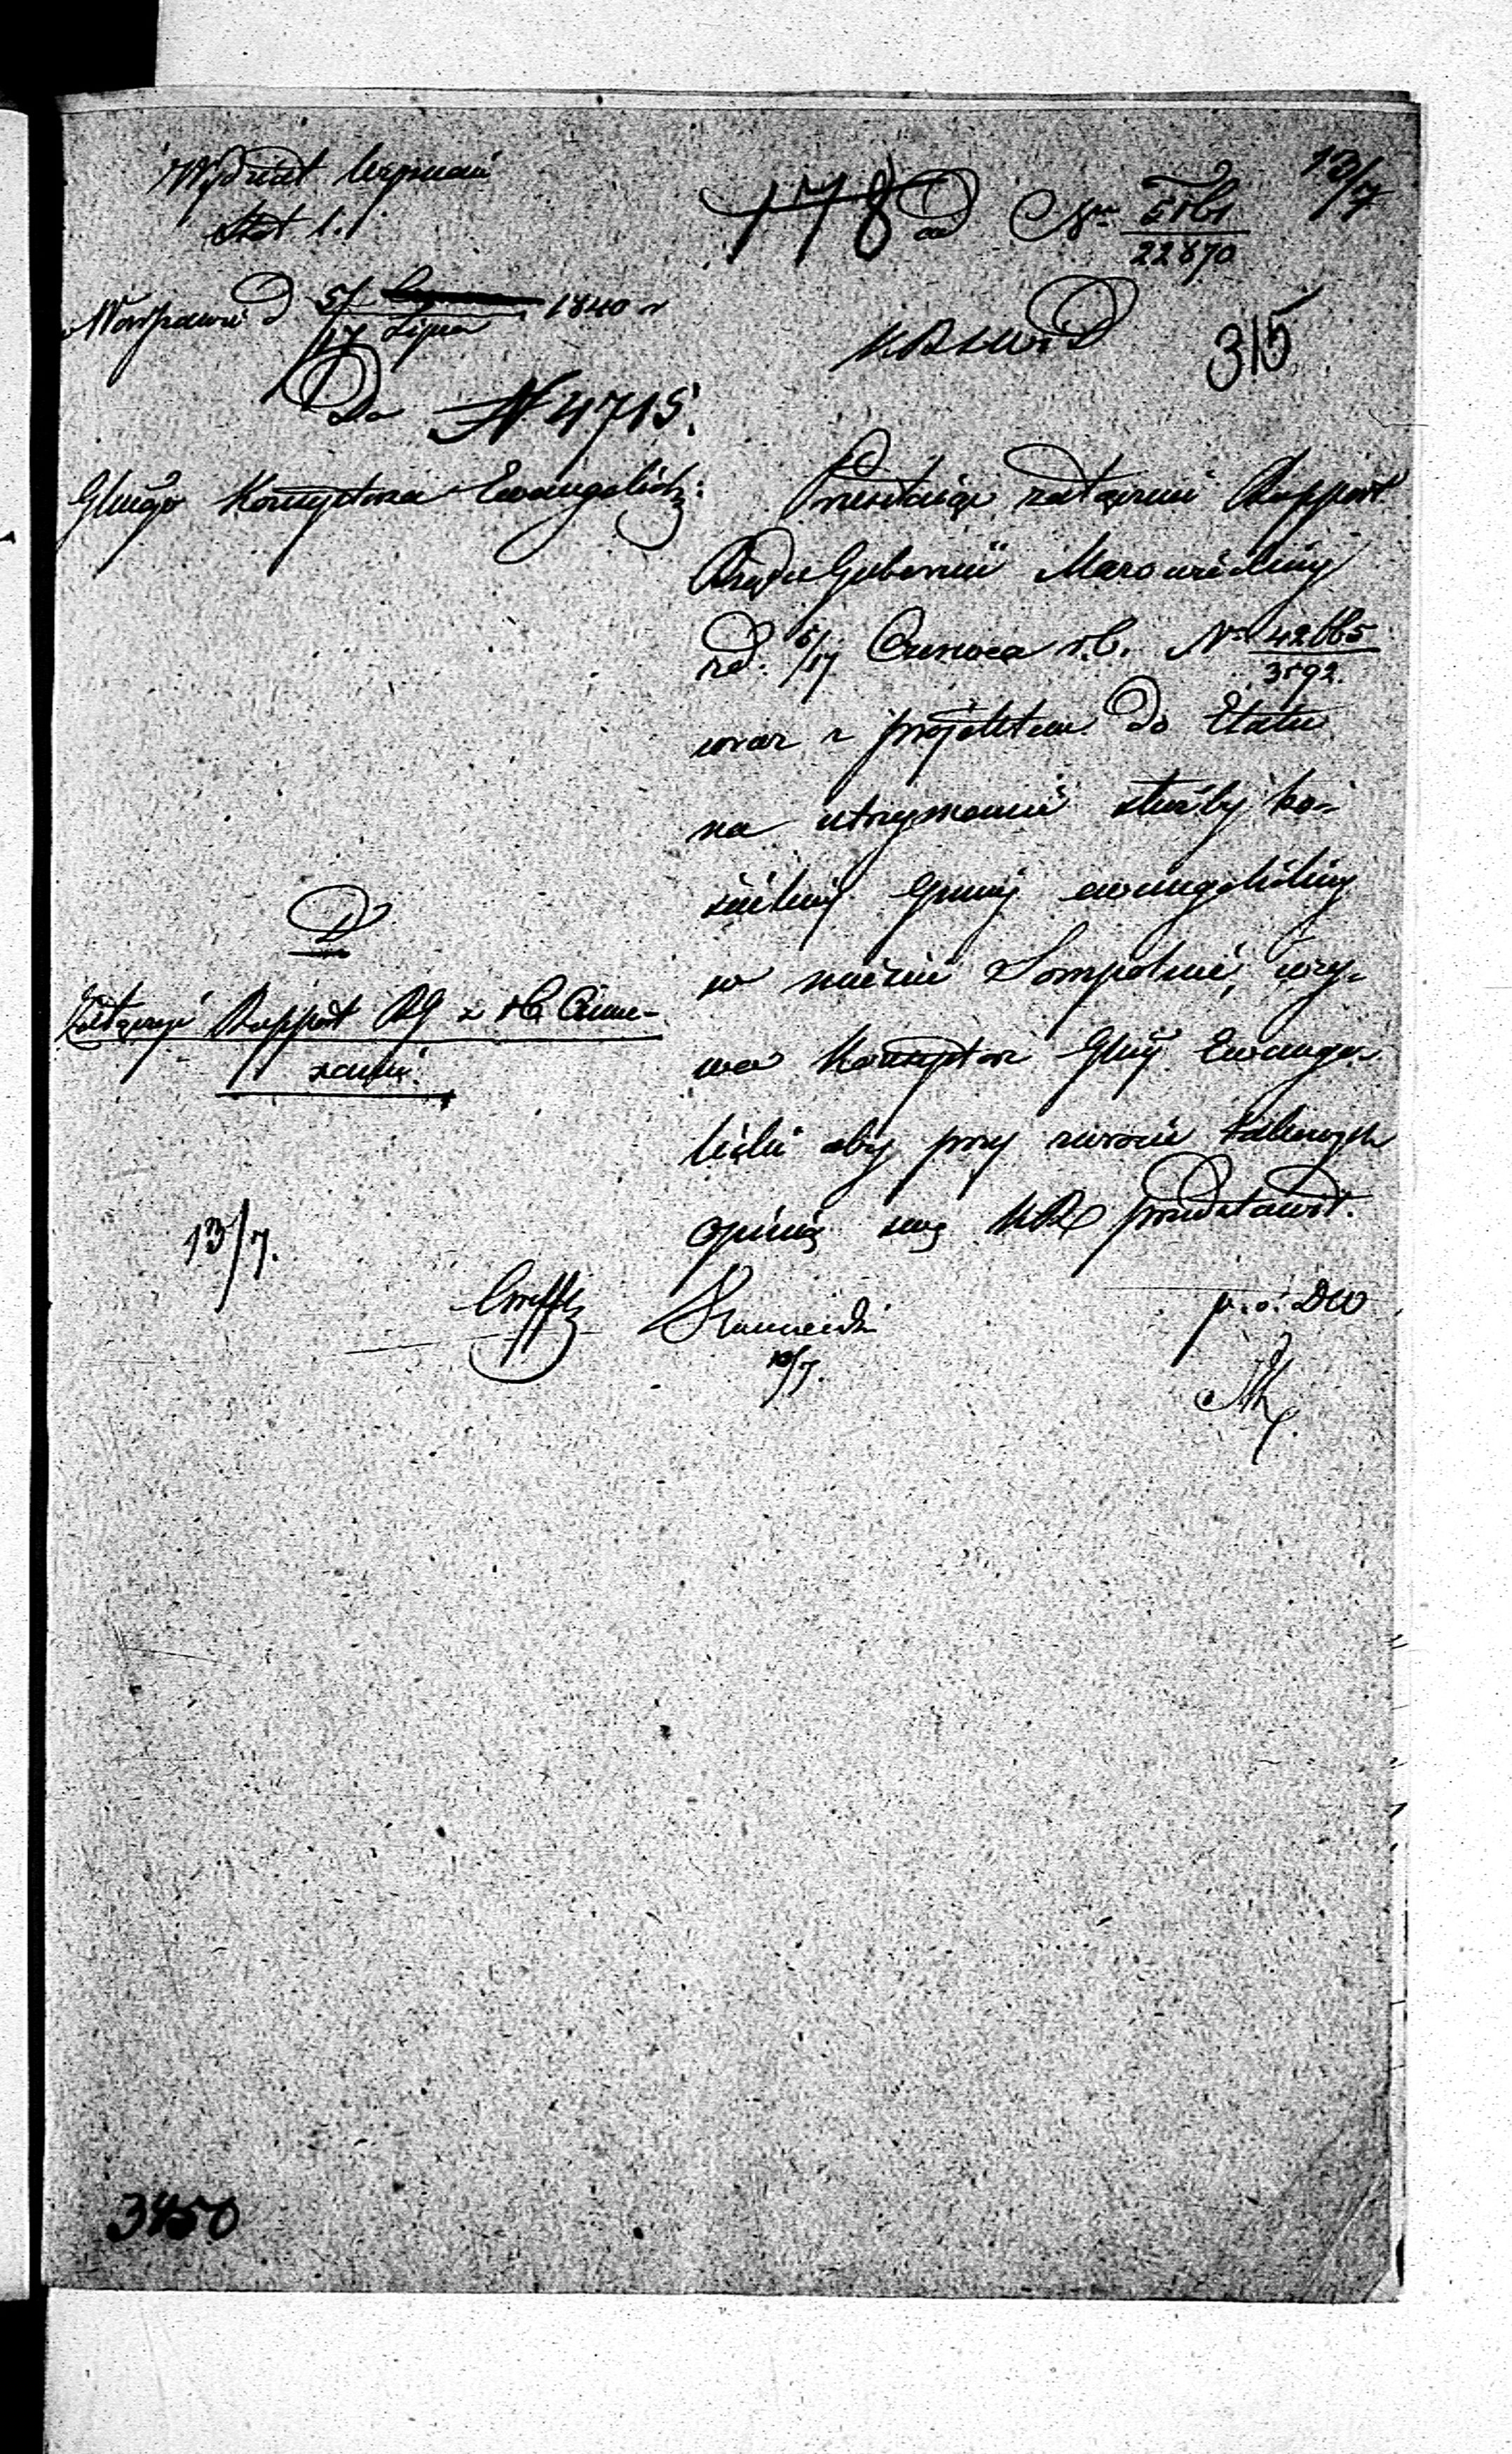 Wydział Wyznań
Sekt 1.
178 ad Nrm 5761/22870
13/7
w Warszawie d 5/17 Lipca 1840 r
KRSWiD
315
Do N 4715.
Głnego Konsystorza Ewangelick:
Przesyłając w załączeniu Rapport
Rządu Gubernii Mazowieckiej
z d. 5/17 Czerwca r.b. Nr 42665/3592.
wraz z projektem do Etatu
na utrzymanie służby ko-
ścielnej Gminy ewangelickiej
w mieście Sompolnie, wzy-
wa Konsystorz Głny Ewange-
licki aby przy zwrocie takowych
opinię swą KR przedstawił.
D
Załączyć Rapport RG z
13/7.
10/7.
p. o. DW
3450